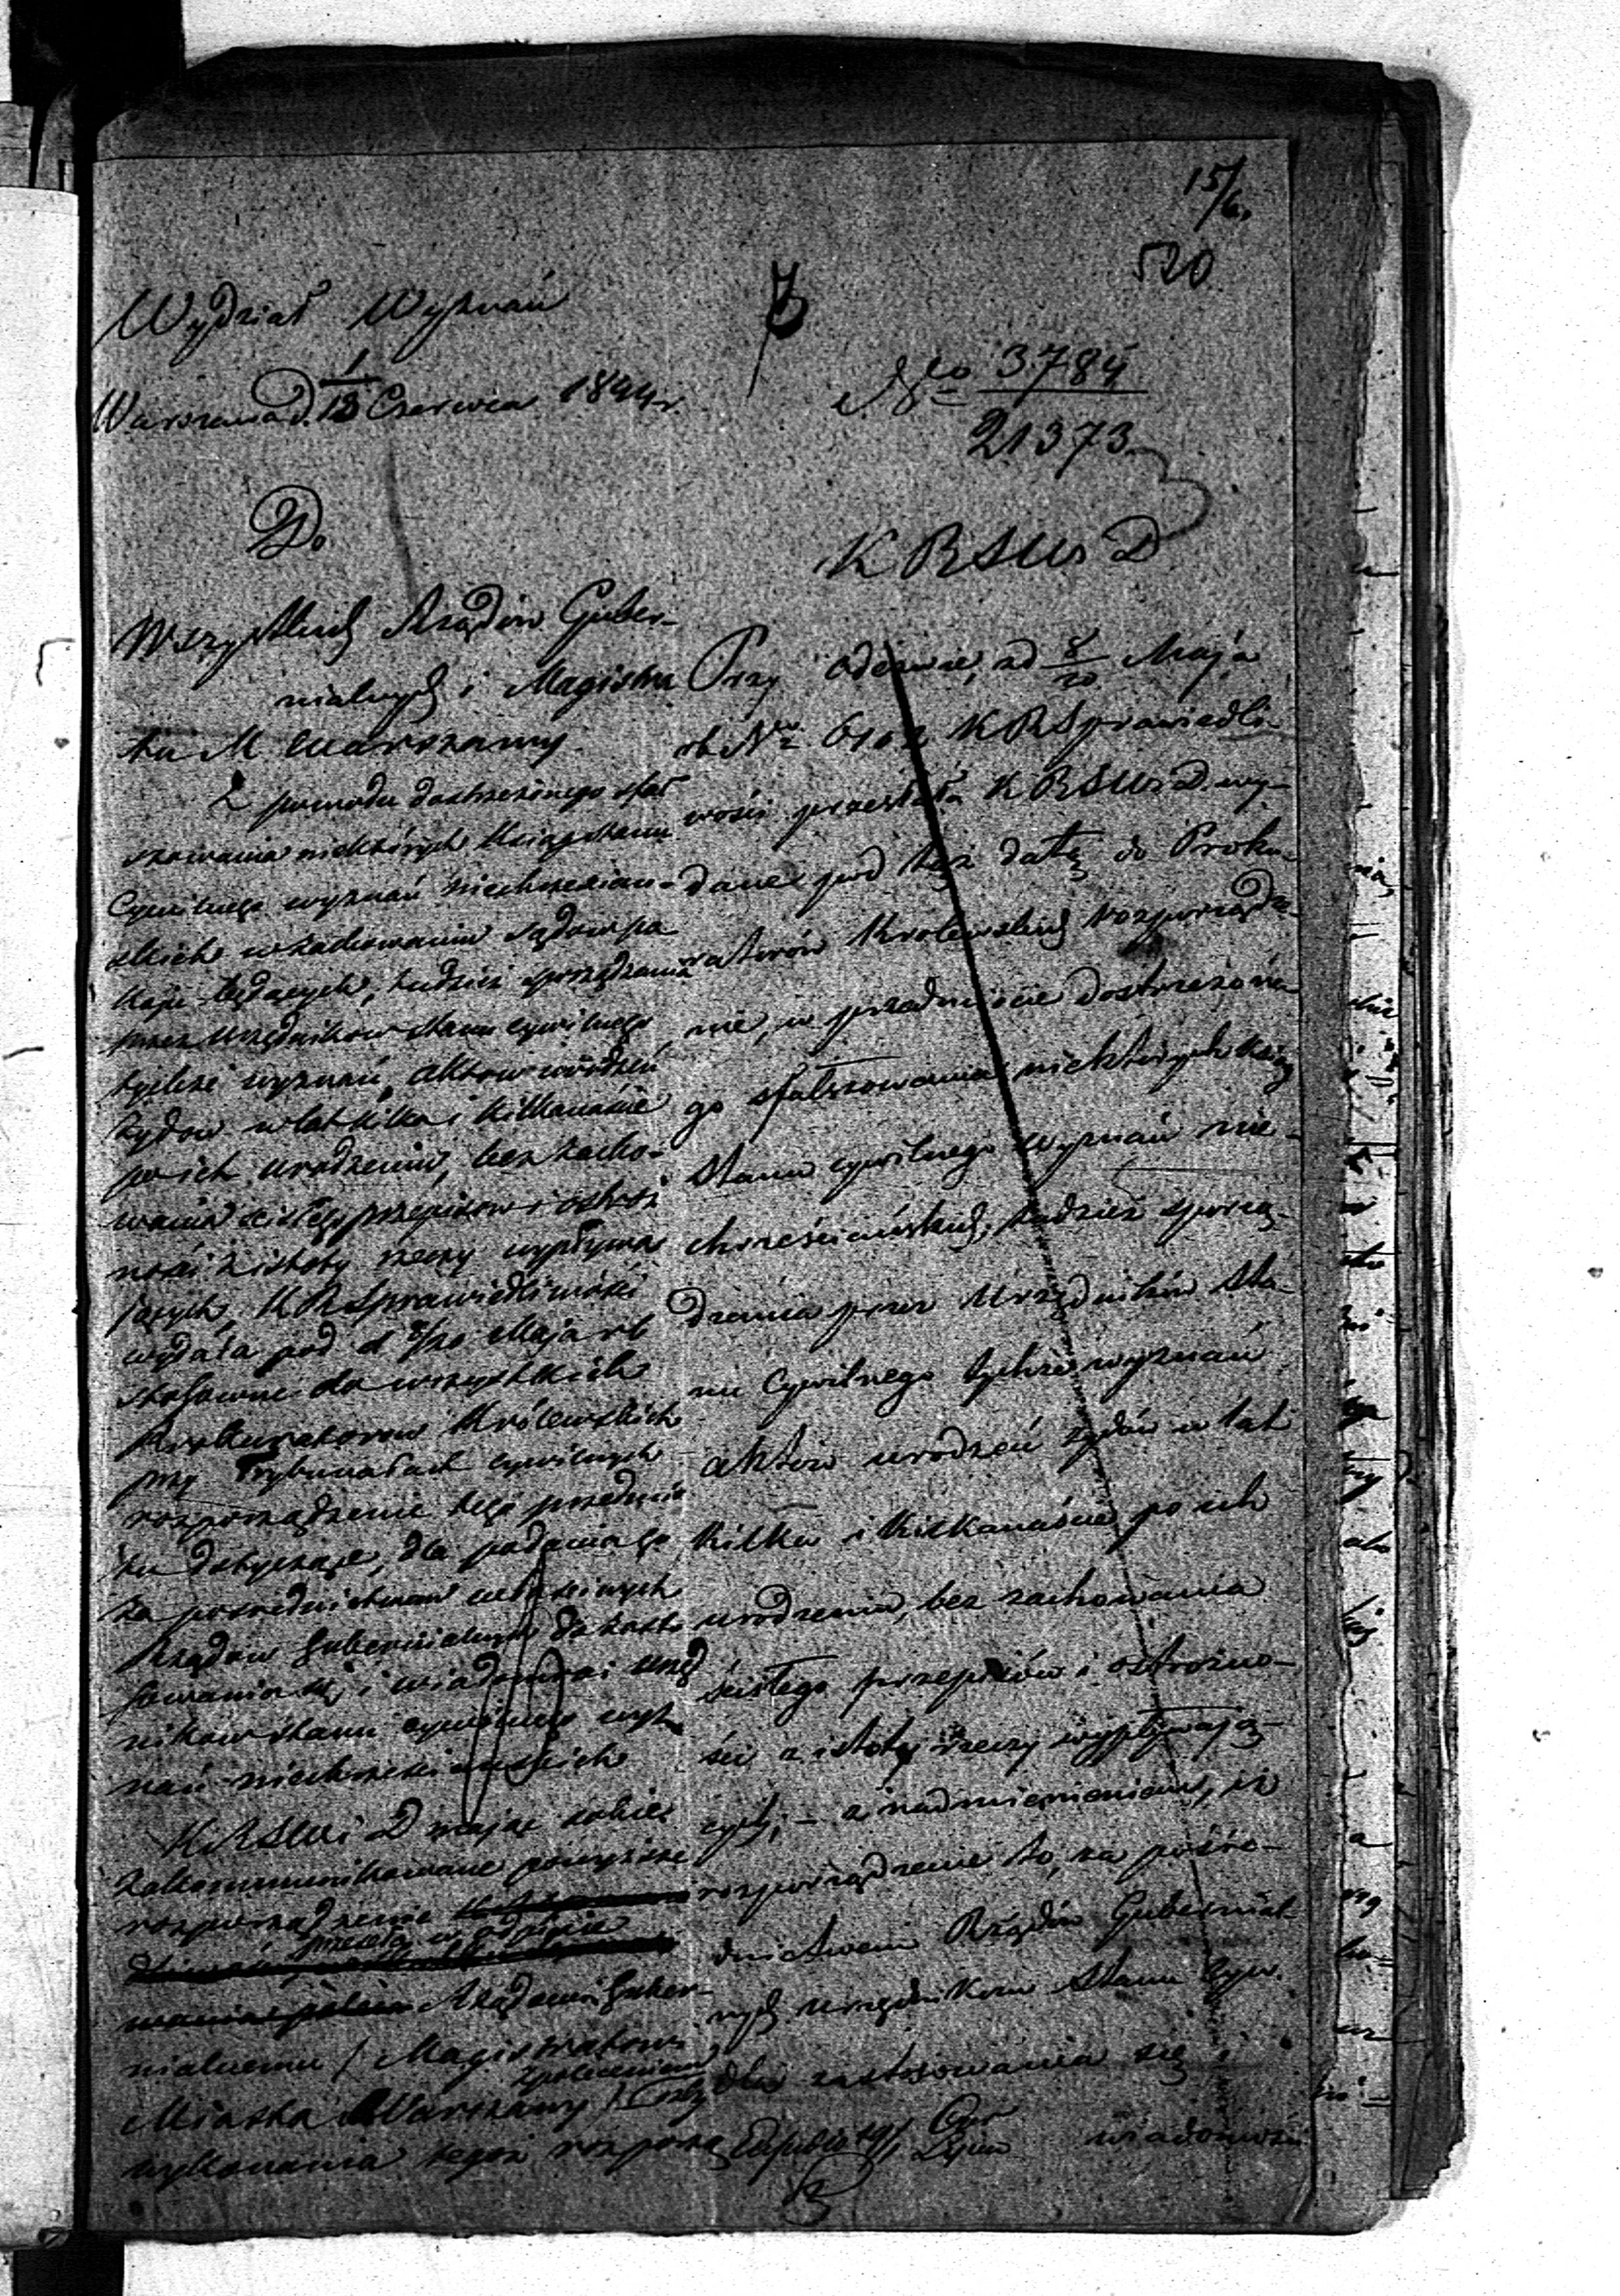 15/6.
520
Wydział Wyznań
Warszawa d. 1/13 Czerwca 1844 r.
No 3784
21373
Do
KRSWiD
Wszystkich Rządów Guber-
nialnych i Magistra
tu M Warszawy.
Z powodu dostrzeżonego sfał
szowania niektórych Ksiąg stanu
Cywilnego wyznań niechrześcian-
skich w zachowaniu sądow po
koju będących, tudzież sporządzania
przez Urzędników stanu cywilnego
tychże wyznań, aktow urodzeń
Żydow w lat kilka i kilkanaście
po ich urodzeniu, bez zacho-
wania ścisłego przepisow i ostroż
ności z istoty rzeczy wypływa
jących, KRSprawiedliwości
wydała pod d 8/20 Maja rb
stosowne do wszystkich
Prokuratorow Królewskich
przy Trybunałach cywilnych
rozporządzenie tego przedmio
tu dotyczące, dla podania go
za pośrednictwem właściwych
Rządow Gubernialnych do zasto
sowania się i wiadomości urzęd
nikow stanu cywilnego wyz
nań niechrześciańskich
KRSWiD mając sobie
zakommunikowane powyższe
rozporządzenie
przesyła w odpisie
Rządowi Guber-
nialnemu / Magistratowi
Miasta Warszawy /
z poleceniem
wykonania tegoż rozporzą
Przy odezwie, z d 8/20 Maja
rb No 6102 KRSprawiedli-
wości przesłała KRSWiD. wy-
dane pod tęż datą do Proku-
ratorów Krolewskich rozporządze-
nie, w przedmiocie dostrzeżone-
go sfałszowania niektórych Ksiąg
Stanu cywilnego wyznań nie-
chrześciańskich, tudzież sporzą-
dzenia przez Urzędników Sta-
nu Cywilnego tychże wyznań
aktów urodzeń żydów w lat
kilka i kilkanaście po ich
urodzeniu, bez zachowania
ścisłego przepisów i ostrożno-
ści z istoty rzeczy wypływają-
cych; – z nadmienieniem, iż
rozporządzenie to, za pośre-
dnictwem Rządów Gubernial-
nych urzędnikom Stanu Cyw.
dla zastosowania się i
wiadomości